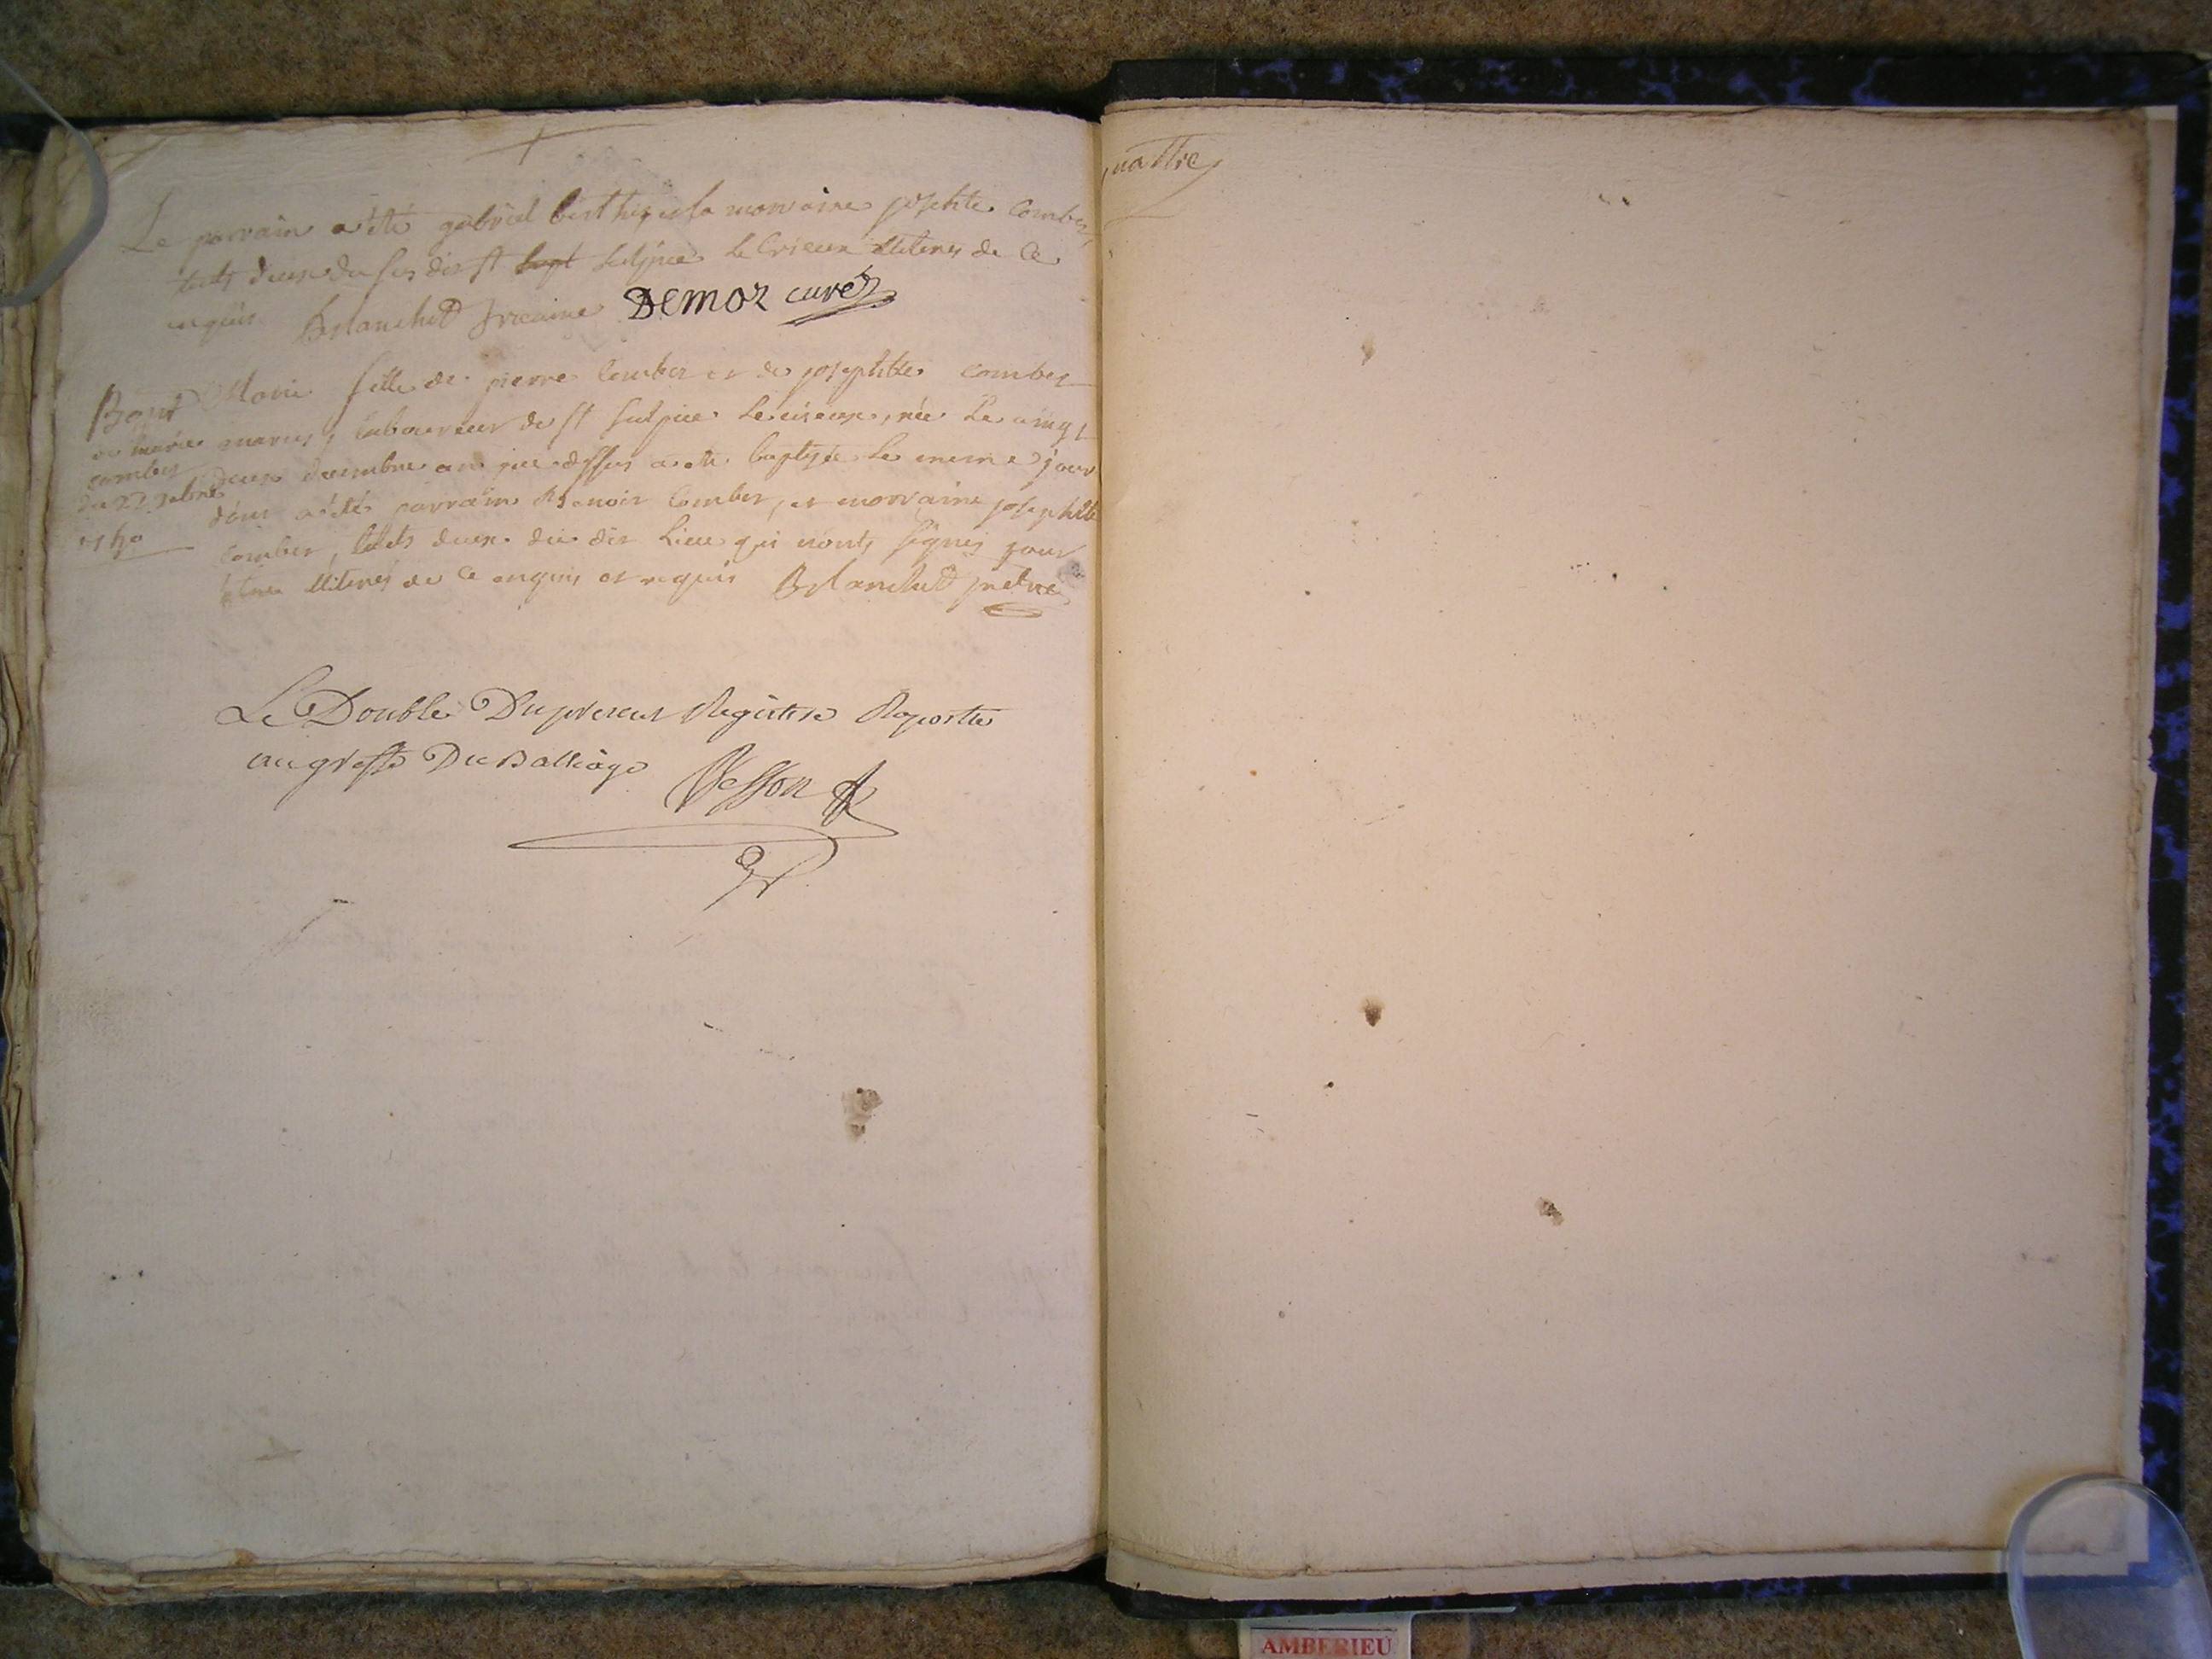 Le parrain a été gabriel berthier et la marraine josephte combet
touts deux du sus dit st sulpice le vieux illiterés de ce
enquis Blanchet vicaire Demoz curé
Bapt
de marie
combet
du 22 xbre
Marie fille de pierre combet et de josephte combet
mariés, laboureur de st sulpice le vieux, née le vingt
deux decembre an que dessus a été baptisée le meme jour
dont a été parrain Benoit combet, et marraine josephte
combet, touts deux du dit lieu qui n'ont signés pour
être illiterés de ce enquis et requis Blanchet prêtre
Le Double Du present Registre Raporté
au greffe Du Balliage
uattre
AMBERIEU